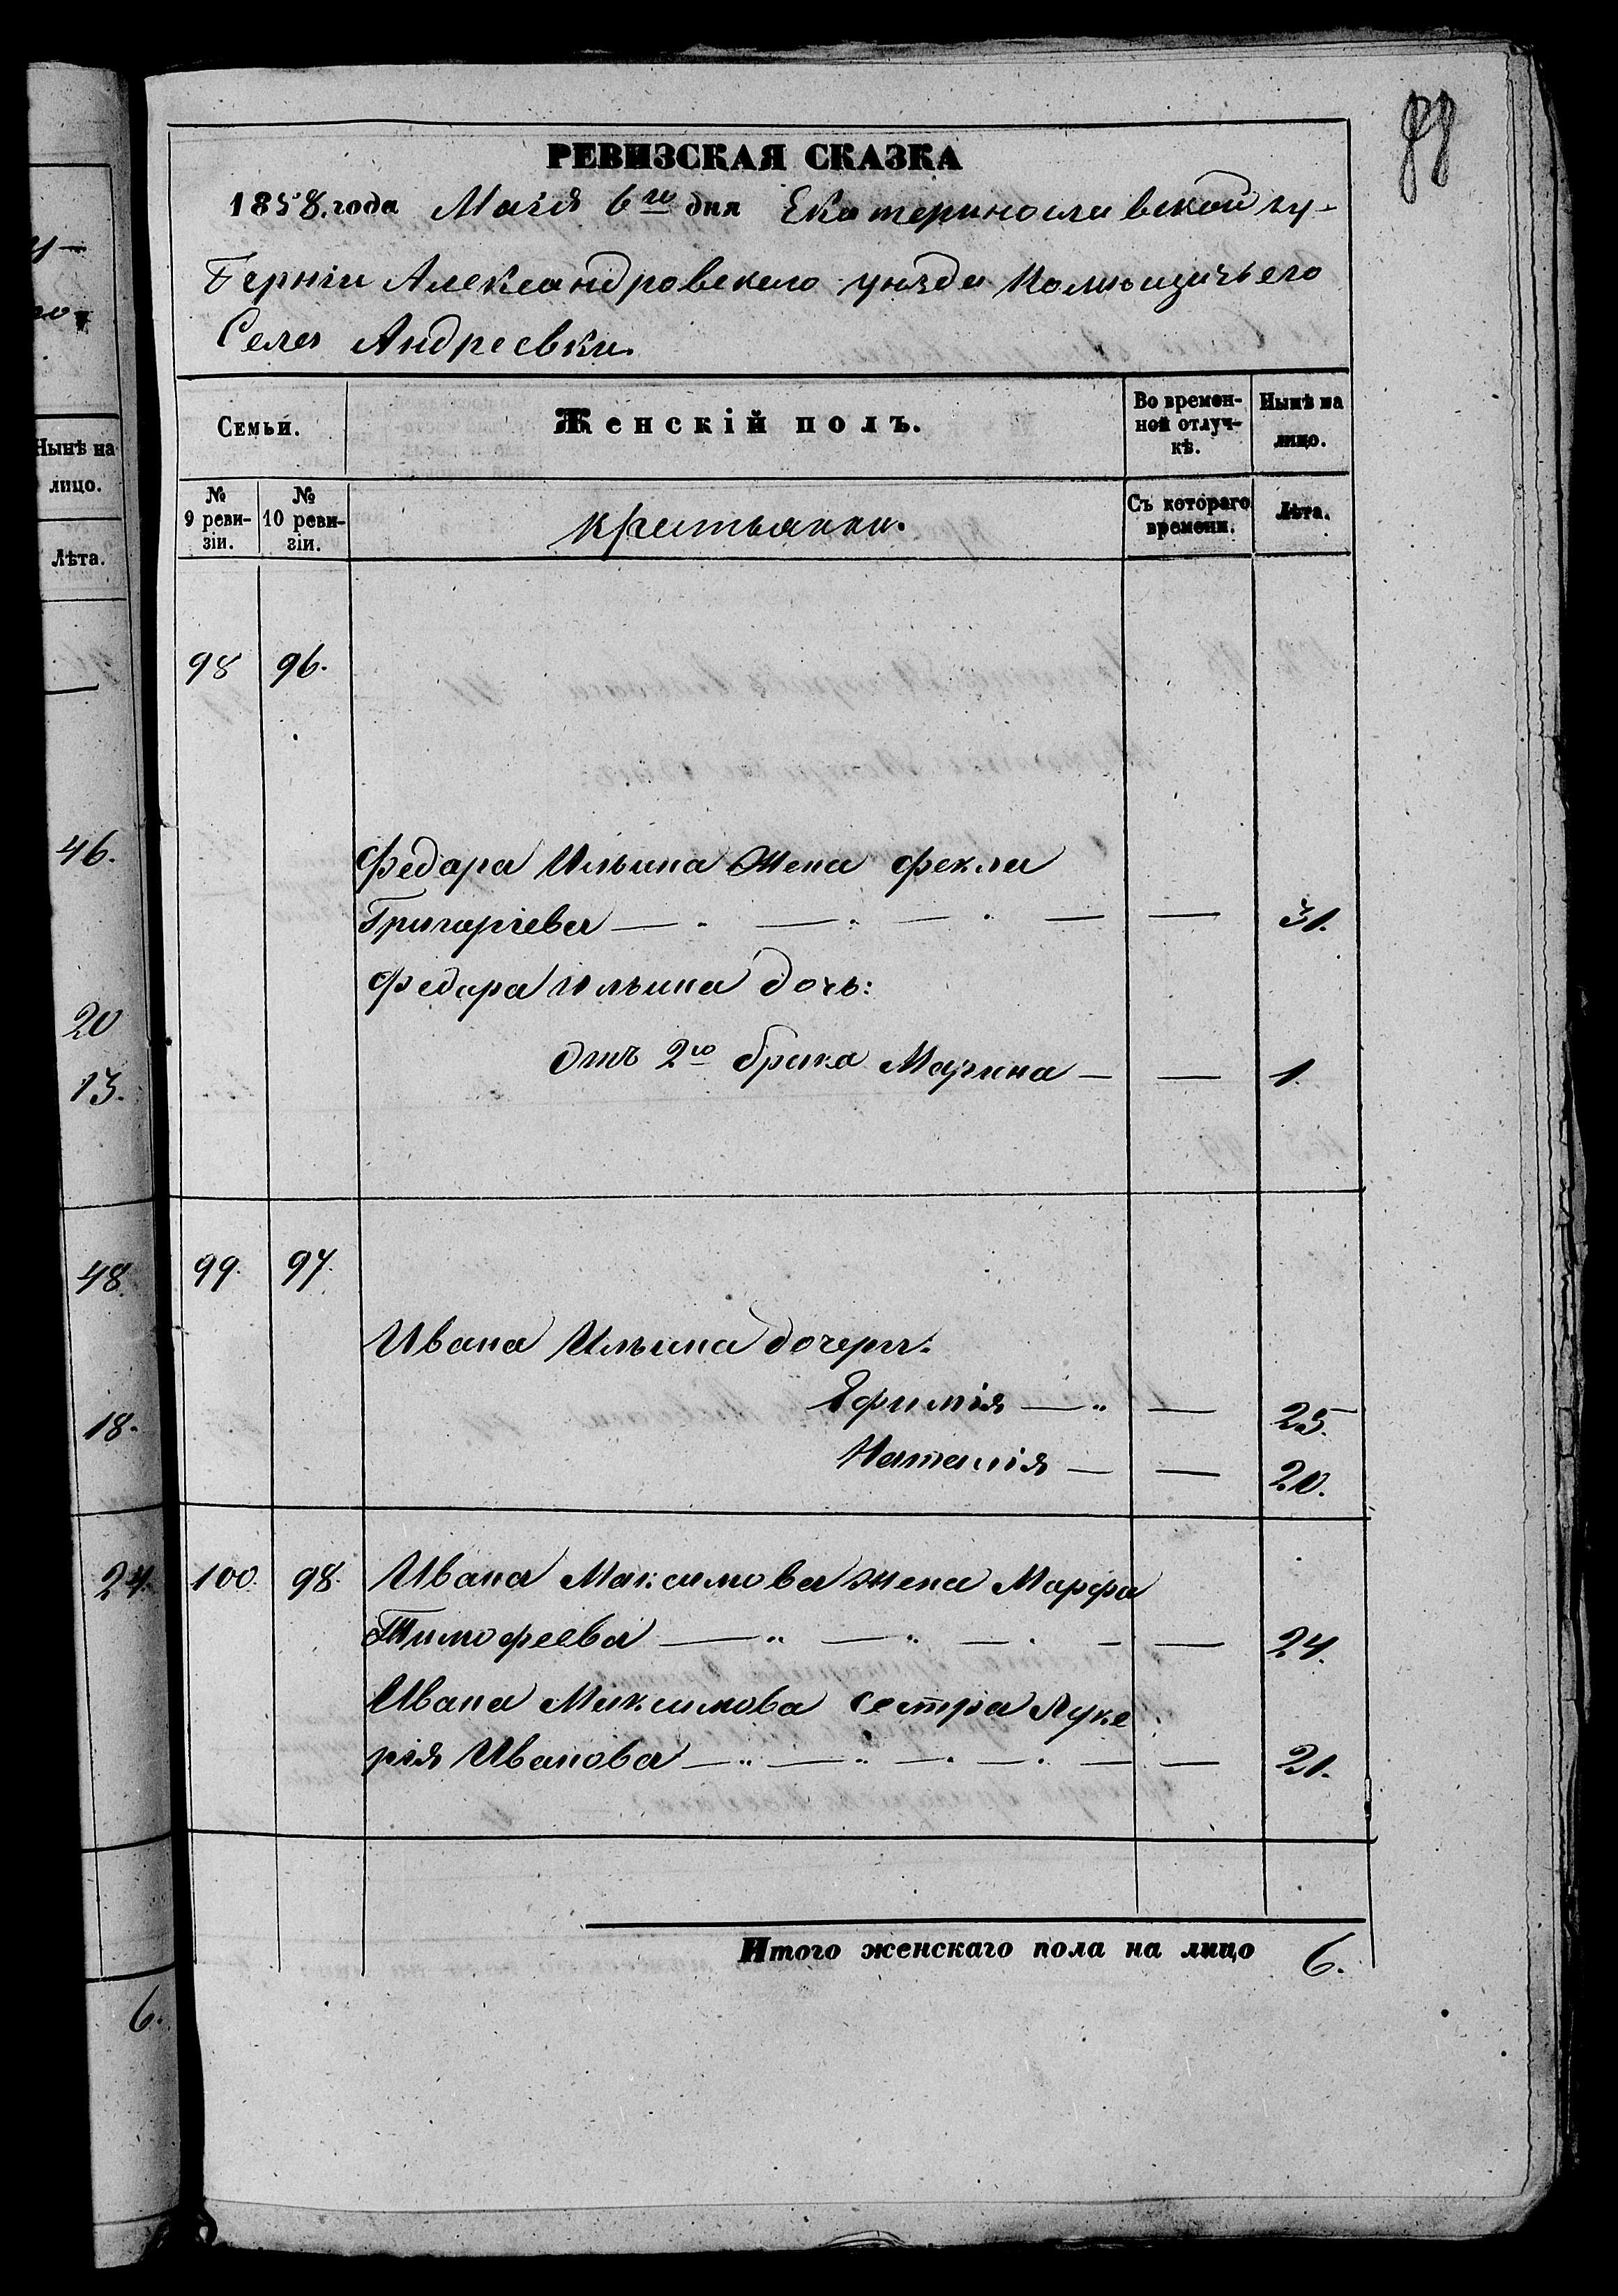 88
РЕВИЗСКАЯ СКАЗКА
1858. года Маія 6го дня Екатеринославской гу-
берніи Александровскаго уѣзда помѣщичьего
Села Андреевки.
Семьи.
Женскій полъ.
Во времен-
ной отлуч-
кѣ.
Нынѣ на
лицо.
№
9 реви-
зіи.
№
10 реви-
зіи.
крестьянки.
Съ котораго
времени.
Лѣта.
98 96.
Федара Ильина Жена Фекла
Григаріева — — — — — 31.
Федара Ильина дочь:
Отъ 2го брака Марина — — 1.
99. 97.
Ивана Ильина дочери:
Ефимія — — 25.
Наталія — — 20.
100. 98. Ивана Максимова жена Марфа
Тимофеева — — — — — 24.
Ивана Максимова сестра Луке
рія Иванова — — — — — — 21.
Итого женскаго пола на лицо 6.
у-
Нынѣ на
лицо.
Лѣта.
46.
20
13.
48.
18.
24.
6.